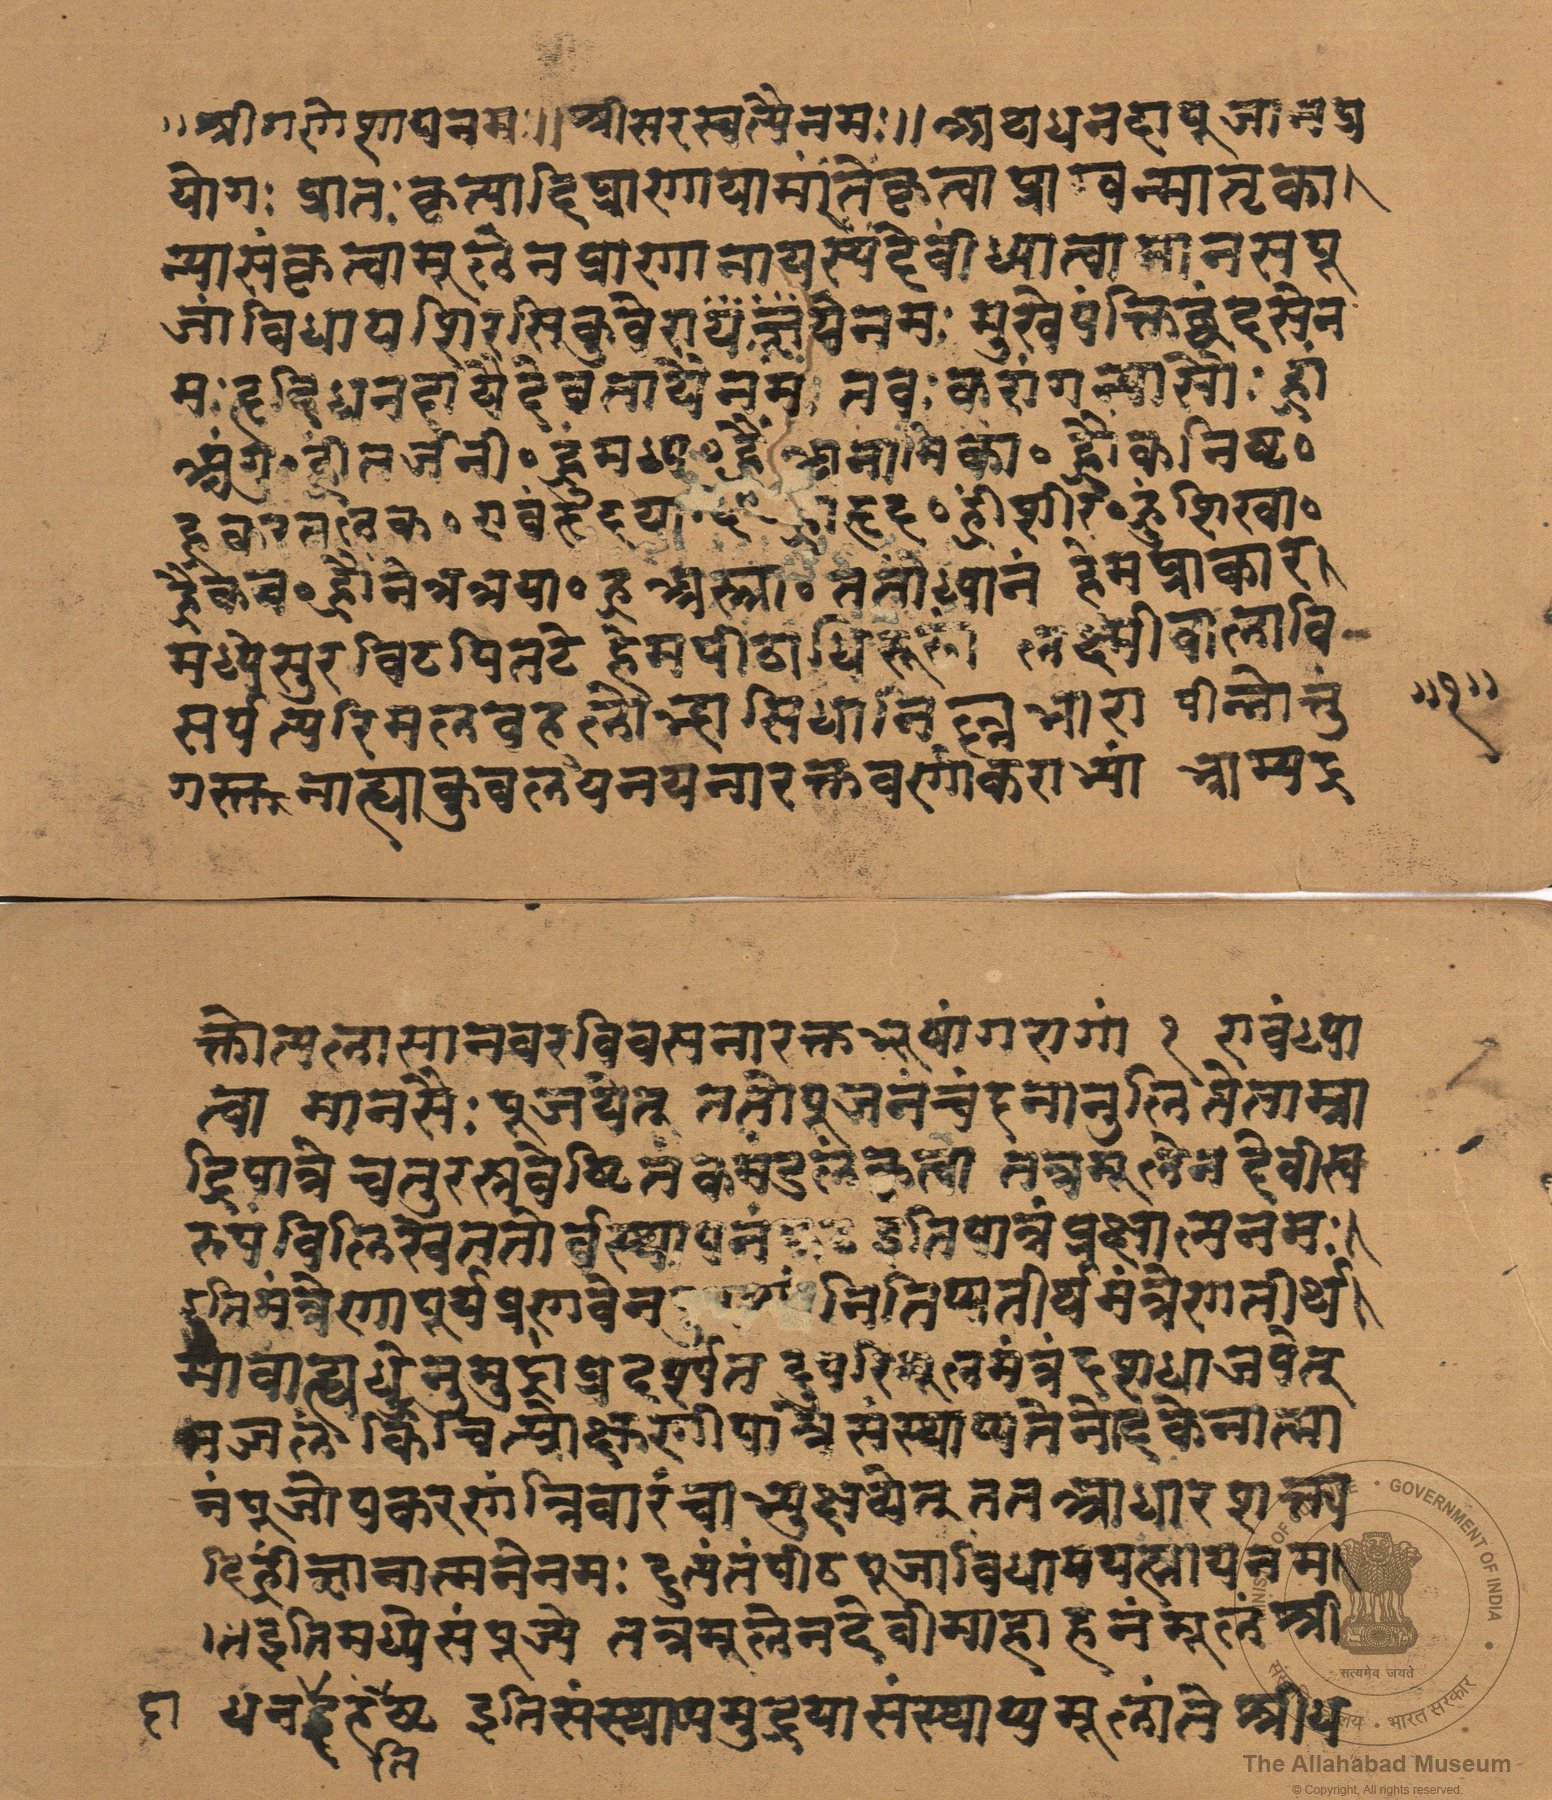 ॥श्रीगणेशायनमः॥ श्रीसरस्वत्यैनमः॥ अथधनदापूजानप्र
योगः प्रातःकृत्यादिप्राणायामांतंकृत्वा प्राग्वन्मातृका
न्यासंकृत्वामूलेनप्राणानायम्यदेवींध्यात्वामानसपू
जांविधायशिरसिकुवेरायनमः मुखेपंक्तिछंदसेन
मः हृदिधनदायैदेवतायैनमः करांगन्यासौः ह्रां
अंगु॰ ह्रींतर्जनी॰ ह्रूंमध्य॰ ह्रैंअनामिका॰ ह्रौंकनिष्ट॰
ह्रःकरतलेक॰ एवंहृदया ह्रांहृद॰ ह्रींशीर॰ ह्रूंशिखा॰
ह्रैंकव॰ ह्रौंनेत्रत्रया॰ ह्रःअस्त्रा॰ ततोध्यानं हेमप्राकार
मध्येसुरविटपितटे हेमपीठाधिरूढां लक्ष्मीवालावि
पीनोत्तुं
॥१॥
गस्तनाढ्याकुवलयनयनारक्तवर्णांकराभ्यां भ्राम्यद्र
क्तोत्पलासानवरविवसनारक्तभूषांगरागां १ एवंध्या
त्वा मानसैः पूजयेत् ततोपूजनंचंदनानुलिप्तेताम्रा
दिपात्रे चतुरस्रवेष्टितंकमंडलंकृत्वा तत्रमूलेनदेवीस्व
रुपंविलिखेततोर्वस्थापनं इतिपात्रंप्रक्षाल्यनमः।
इतिमंत्रेणापूर्यप्रणवेन तीर्थमंत्रेणतीर्थ।
मावाह्यधेनुमुद्रांप्रदर्श्यत दुपरिमूलमंत्रंदशधाजपेत्
तजलं किंचित्प्रोक्षणीपात्रेसंस्थाप्यतेनोदकेनात्मा
नंपूजोपकरणंत्रिवारंचाभ्युक्षयेत् ततआधारशक्त्य
दिह्रींज्ञानात्मनेनमः इत्यंतंपीठपूजाविधाय नम।
इतिमध्येसंपूज्ये तत्रमूलेनदेवीमावाहनंमूलं श्री
दा धन इतिसंस्थाप्यमुद्रयासंस्थाप्यमूलांते श्रीध
ति
सत्यमेव जयते
GOVERNMENT OF INDIA
भारत सरकार
The Allahabad Museum
© Copyright, All rights reserved.